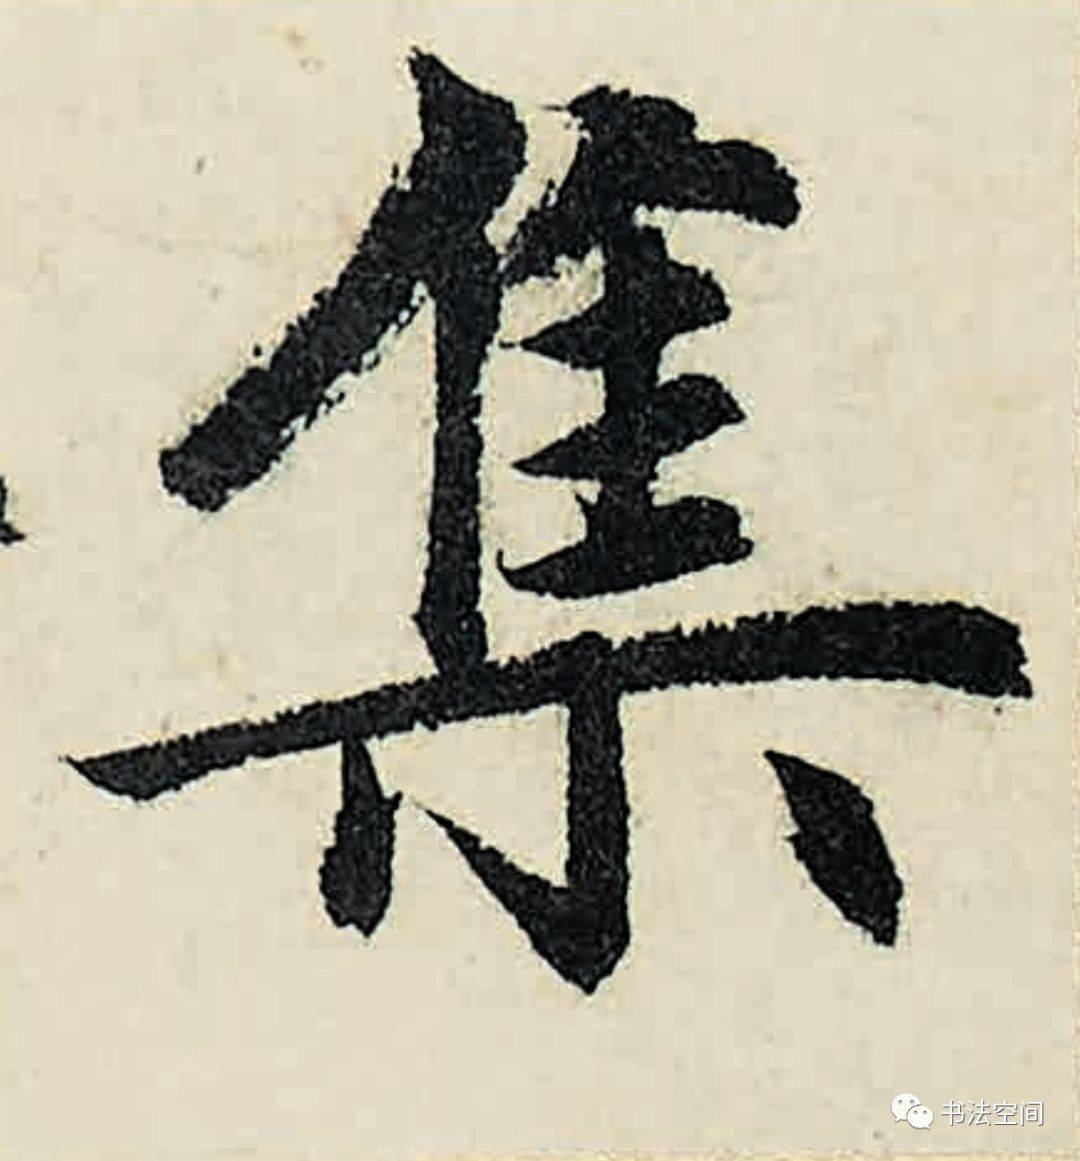 集
书法空间